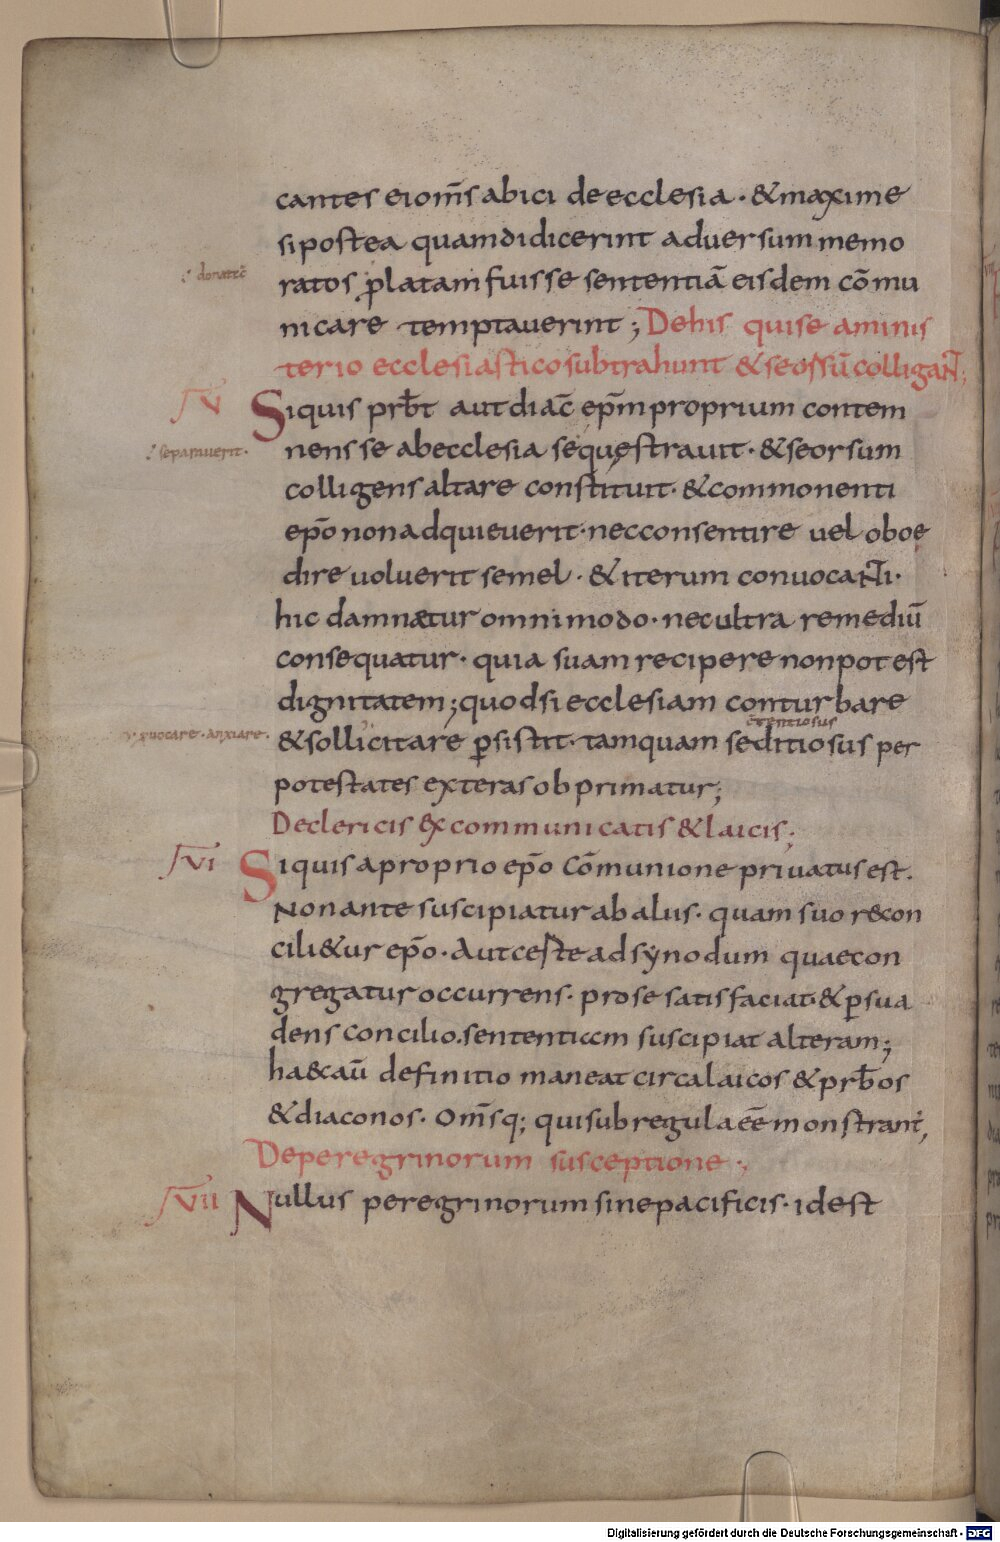 cantes ei om̄s abici de ecclesia · & maxime
si postea quam didicerint aduersum memo
ratos p̱latam fuisse sententiā eisdem cōmu
nicare temptauerint ; De his qui se a minis
terio ecclesiastico subtrahunt & seorsū colligaNT;
V Siquis prb̄t aut diac̄ ep̄m proprium contem
: separauerit · nens se ab ecclesia sequestrauit · & seorsum
colligens altare constituit · & commonenti
ep̄o non adquieuerit · nec consentire uel oboe
dire uoluerit semel · & iterum conuocaNTi ·
hic damnetur omnimodo · nec ultra remediū
consequatur · quia suam recipere non potest
dignitatem ; quod si ecclesiam conturbare
c̄tentiosus
uocare · anxiare · & sollicitare p̱sistit · tamquam seditiosus per
potestates exteras obprimatur ;
De clericis excommunicatis & laicis ;
VI Siquis a proprio ep̄o cōmunione priuatus est ·
Non ante suscipiatur ab aliis · quam suo recon
cili&ur ep̄o · Aut certe ad synodum quae con
gregatur occurrens · pro se satisfaciat · & p̱sua
dens concilio · sententiam suscipiat alteram ;
haec aū definitio maneat circa laicos & prb̄os
& diaconos · Om̄sq; qui sub regula eē monstrant̄,
De peregrinorum susceptione ;
VII Nullus peregrinorum sine pacificis · id est
Digitalisierung gefördert durch die Deutsche Forschungsgemeinschaft - DFG